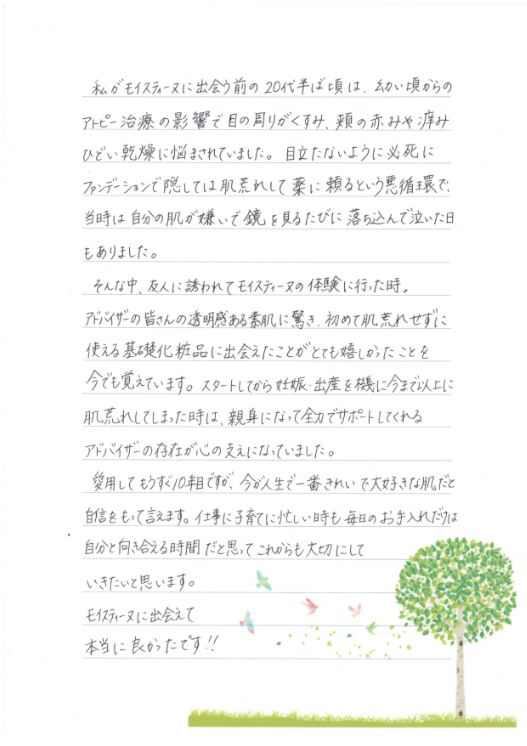 私がモイスティーヌに出会う前の20代半ば頃は、幼い頃からの
アトピー治療の影響で目の周りがくすみ、頬の赤みや痒み
ひどい乾燥に悩まされていました。目立たないように必死に
ファンデーションで隠しては肌荒れして薬に頼るという悪循環で、
当時は自分の肌が嫌いで鏡を見るたびに落ち込んで泣いた日
もありました。
そんな中、友人に誘われてモイスティーヌの体験に行った時。
アドバイザーの皆さんの透明感ある素肌に驚き、初めて肌荒れせずに
使える基礎化粧品に出会えたことがとても嬉しかったことを
今でも覚えています。スタートしてから妊娠・出産を機に今まで以上に
肌荒れしてしまった時は、親身になって全力でサポートしてくれる
アドバイザーの存在が心の支えになっていました。
愛用してもうすぐ10年目ですが、今が人生で一番きれいで大好きな肌だと
自信をもって言えます。仕事に子育てに忙しい時も毎日のお手入れだけは
自分と向き合える時間だと思ってこれからも大切にして
いきたいと思います。
モイスティーヌに出会えて
本当に良かったです!!